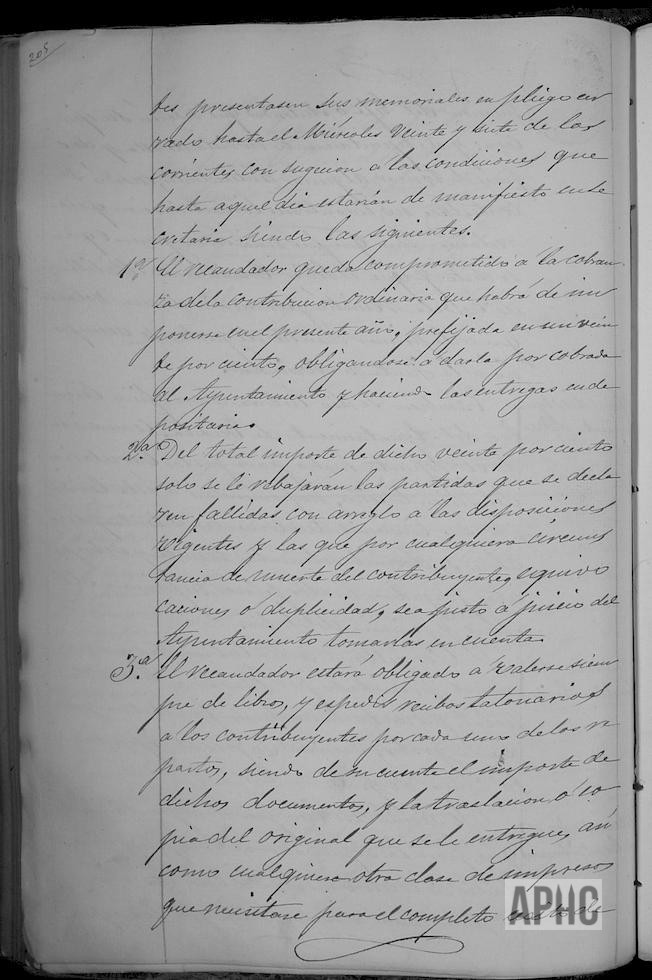 205
tes presentasen sus memoriales en pliego cer
rado hasta el Miércoles veinte y siete de los
corrientes con sugecion a las condiciones que
hasta aquel dia estarian de manifiesto en se
cretaria siendo las siguientes.
1ª El recaudador queda comprometido á la cobran
za de la contribucion ordinaria que habrá de im
ponerse en el presente año, prefijada en un vein
te por ciento, obligandose á darla por cobrada
al Ayuntamiento y haciendo las entregas en de
positaria.
2ª Del total importe de dicho veinte por ciento
solo se le rebajarán las partidas que se decla
ren fallidas con arreglo a las disposiciones
vigentes y las que por cualquiera circuns
tancia de muerte del contribuyente, equivo
caciones ó duplicidad, sea justo a juicio del
Ayuntamiento tomarlas en cuenta.
3ª El recaudador estará obligado a valerse siem
pre de libros, y espedir recibos talonarios
a los contribuyentes por cada uno de los re
partos, siendo de su cuenta el importe de
dichos documentos, y la traslacion ó co
pia del original que se le entregue, asi
como cualquiera otra clase de impresos
que necesitare para el completo de
APHC